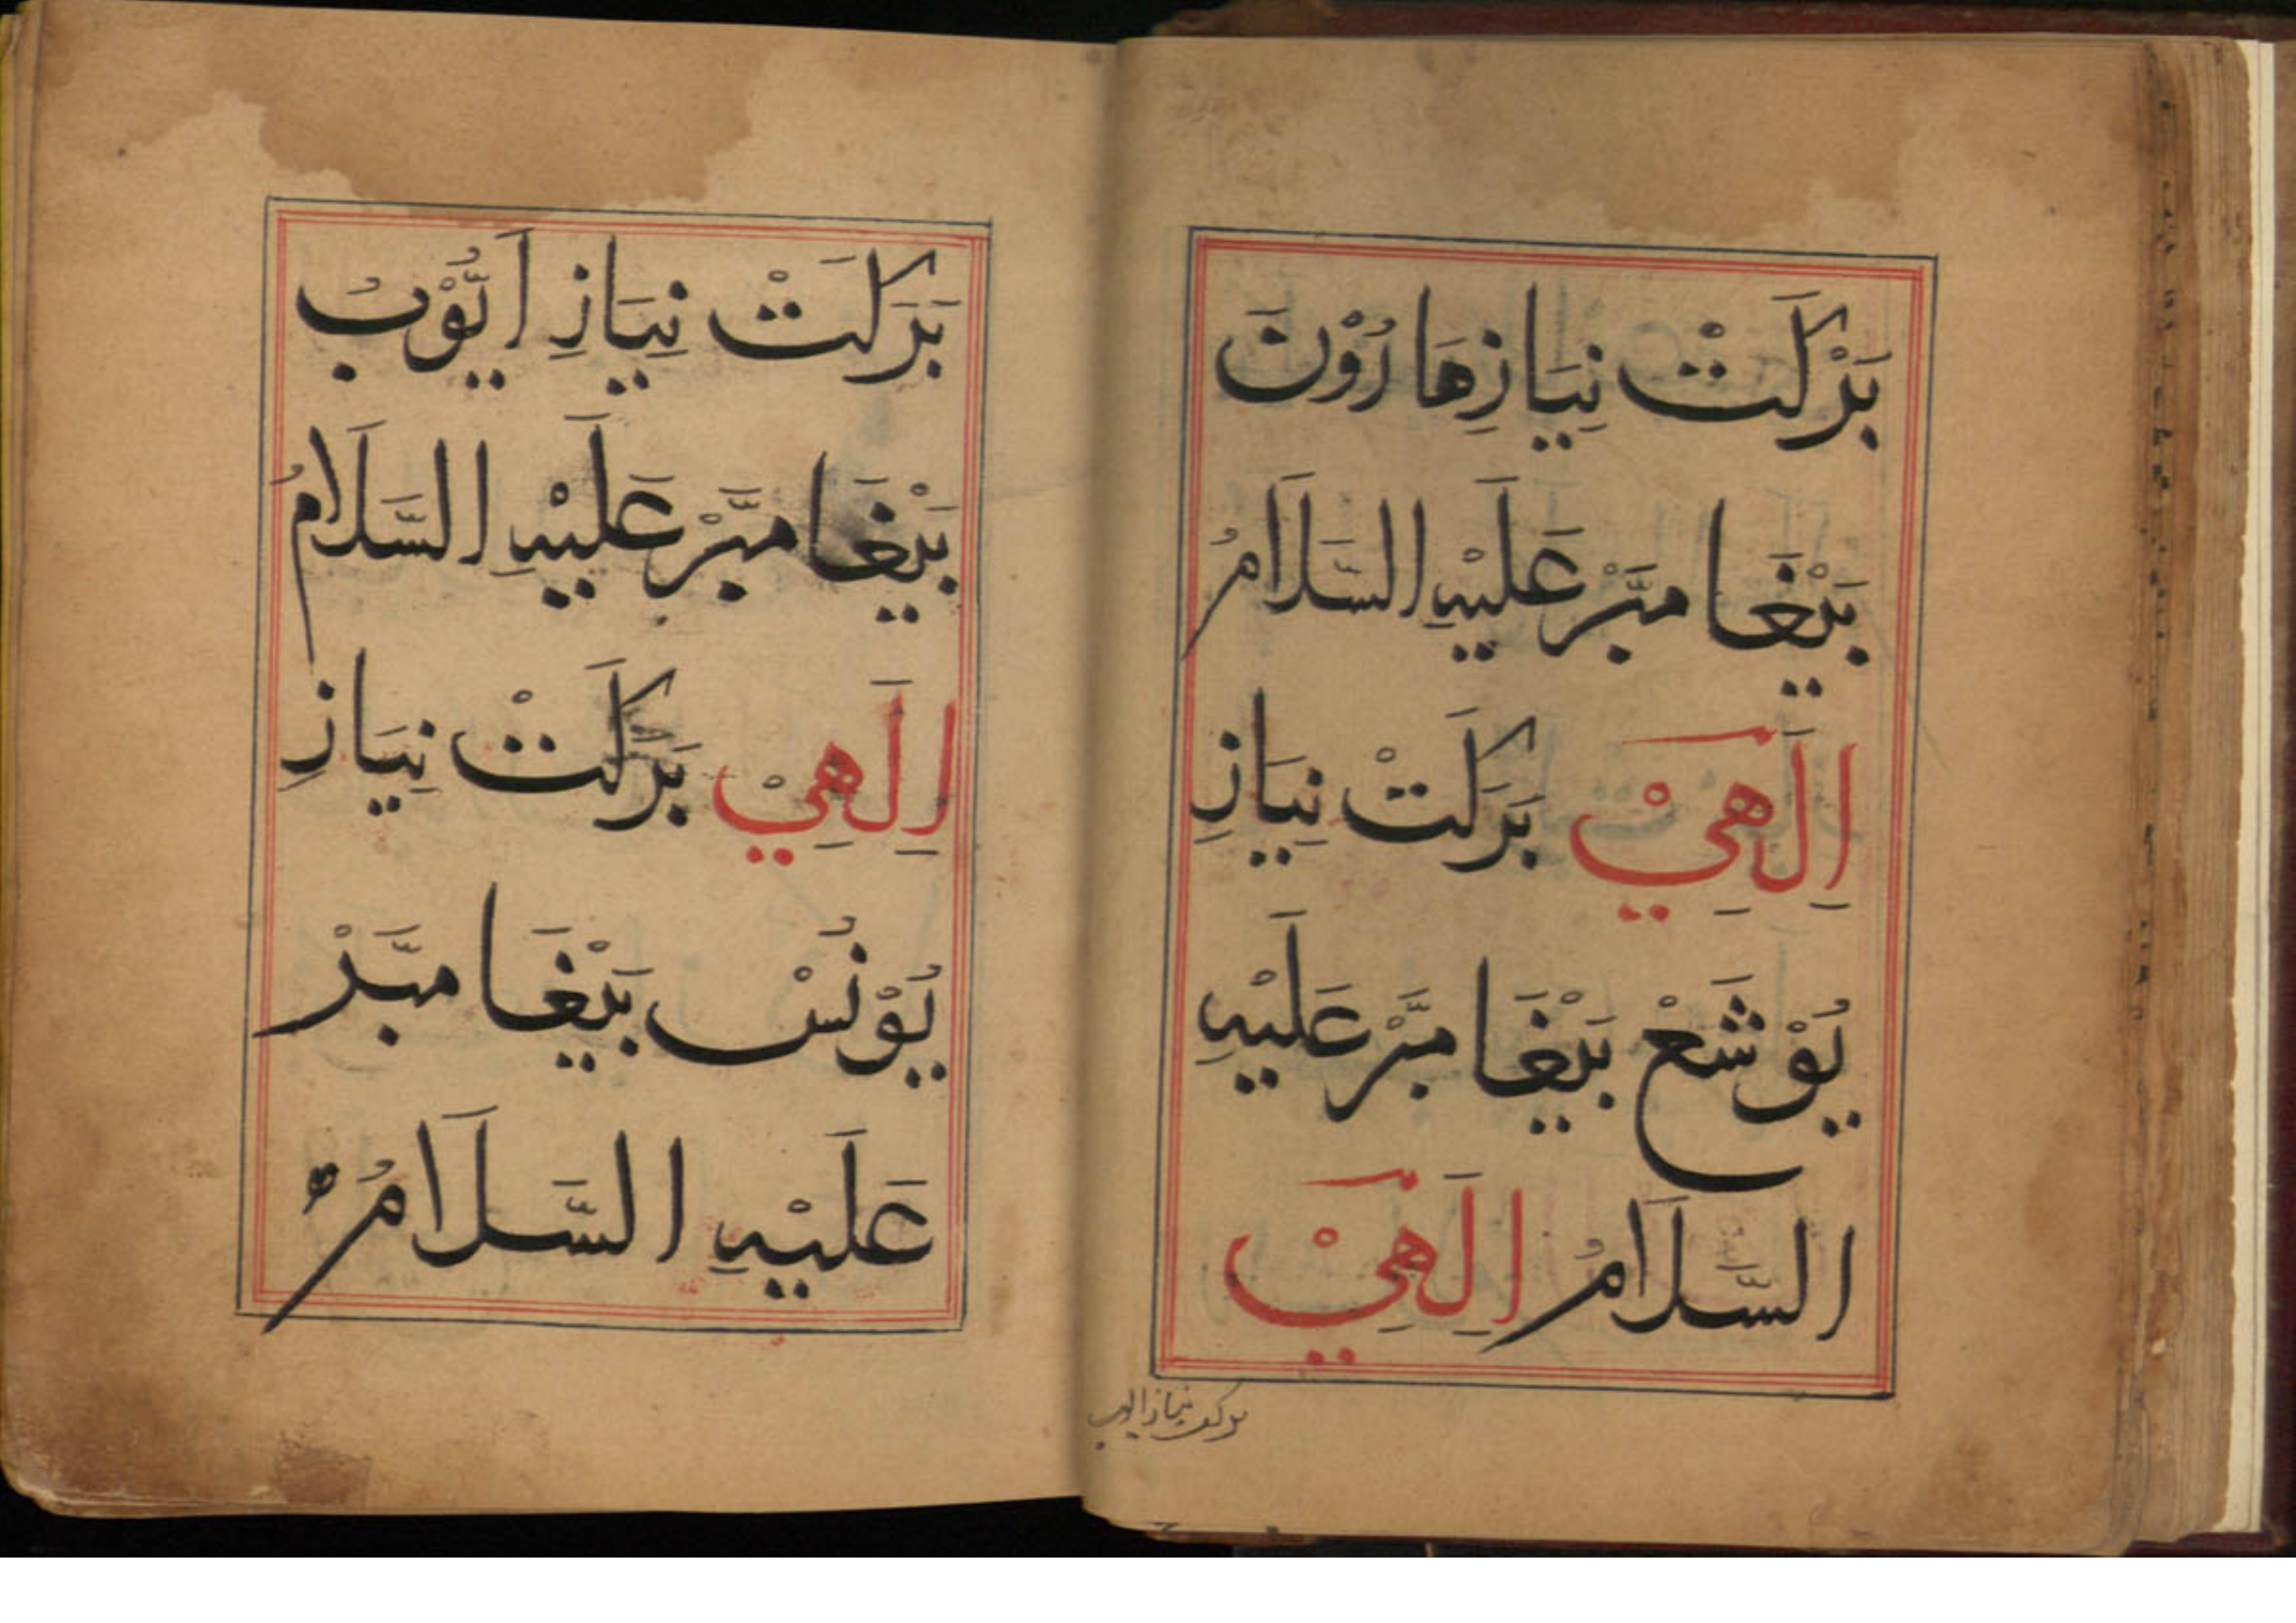 بَرْكَتْ نِيَازِ هَارُوْنَ
بَيْغَامَبَّرْ عَلَيْهِ السَّلَامُ
اِلَهِيْ بَرَكَتْ نِيَازِ
يُوْشَعْ بَيْغَامَبَّرْ عَلَيْهِ
السَّلَامُ اِلَهِيْ
بركت نیاز ایوب
بَرَكَتْ نِيَازِ اَيُّوْبُ
بَيْغَامَبَّرْ عَلَيْهِ السَّلَامُ
اِلَهِيْ بَرَكَتْ نِيَازِ
يُوْنُسْ بَيْغَامَبَّرْ
عَلَيْهِ السَّلَامُ